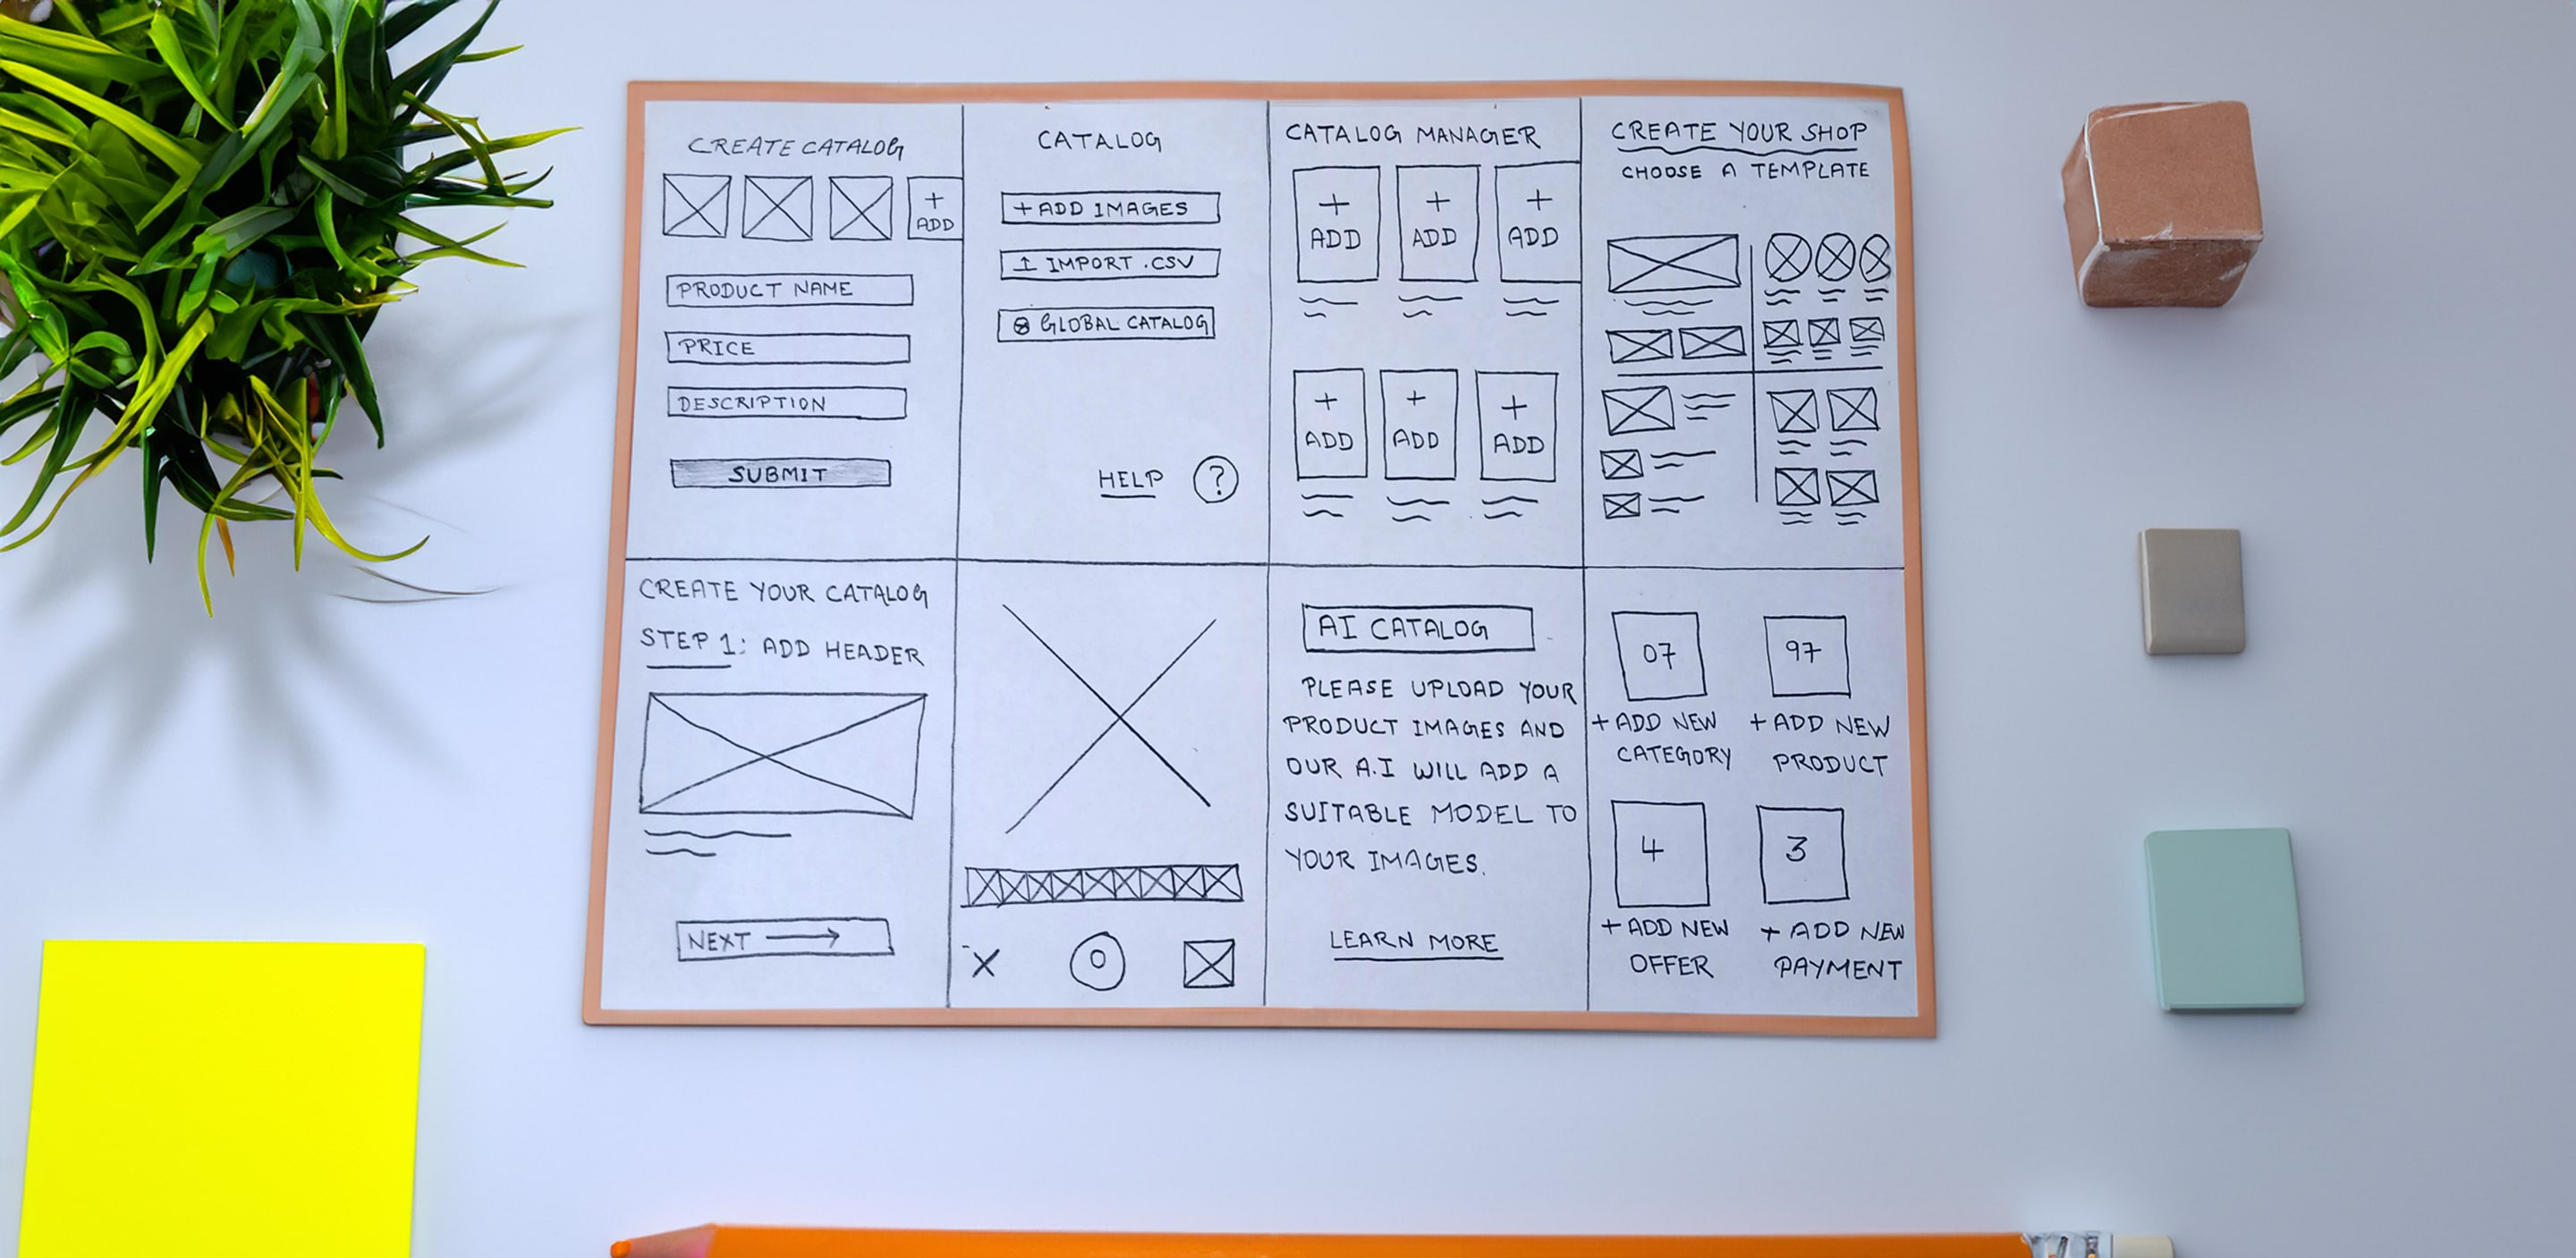 CREATE CATALOG
+
ADD
PRODUCT NAME
PRICE
DESCRIPTION
SUBMIT
CATALOG
+ ADD IMAGES
IMPORT .CSV
GLOBAL CATALOG
HELP ?
CATALOG MANAGER
+ + +
ADD ADD ADD
+ + +
ADD ADD ADD
CREATE YOUR SHOP
CHOOSE A TEMPLATE
CREATE YOUR CATALOG
STEP 1: ADD HEADER
NEXT →
X
AI CATALOG
PLEASE UPLOAD YOUR
PRODUCT IMAGES AND
OUR A.I WILL ADD A
SUITABLE MODEL TO
YOUR IMAGES.
LEARN MORE
07 97
+ ADD NEW CATEGORY
+ ADD NEW PRODUCT
4 3
+ ADD NEW OFFER
+ ADD NEW PAYMENT